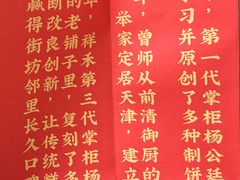 ，第一代掌柜杨公廷
习并原创了多种制饼
，曾师从前清御厨的
举家定居天津，建立
年，祥禾第三代掌柜杨
的老铺子里，复刻了多
断改良创新，让传统糕
赢得街坊邻里长久口